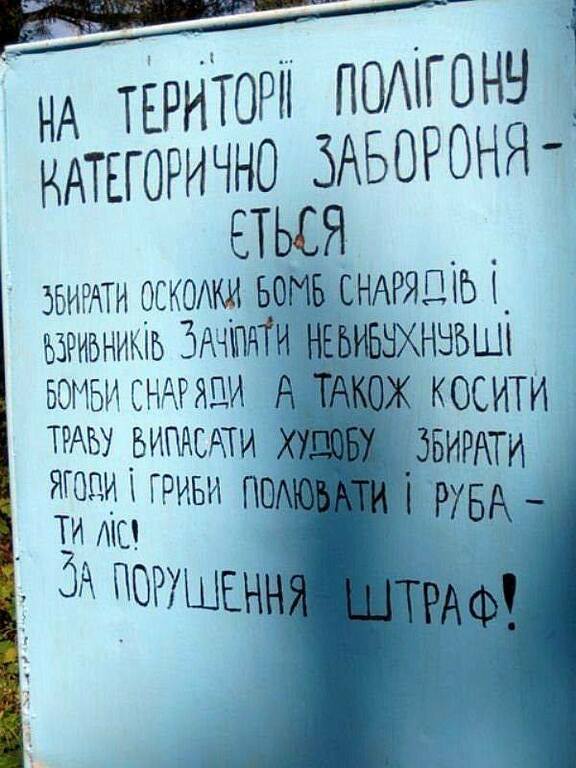 НА ТЕРИТОРІЇ ПОЛІГОНУ
КАТЕГОРИЧНО ЗАБОРОНЯ-
ЄТЬСЯ
ЗБИРАТИ ОСКОЛКИ БОМБ СНАРЯДІВ І
ВЗРИВНИКІВ ЗАЧІПАТИ НЕВИБУХНУВШІ
БОМБИ СНАРЯДИ А ТАКОЖ КОСИТИ
ТРАВУ ВИПАСАТИ ХУДОБУ ЗБИРАТИ
ЯГОДИ І ГРИБИ ПОЛЮВАТИ І РУБА-
ТИ ЛІС!
ЗА ПОРУШЕННЯ ШТРАФ!